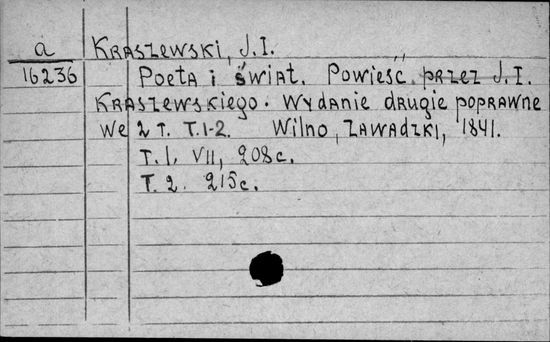 a KRASZEWSKI, J.I.
16236 POETA i ŚWIAT. POWIEŚĆ PRZEZ J.I.
KRASZEWSKIEGO. WYDANIE DRUGIE POPRAWNE
WE 2 T. T.1-2. WILNO, ZAWADZKI, 1841.
T.1. VII, 208c.
T.2. 215c.